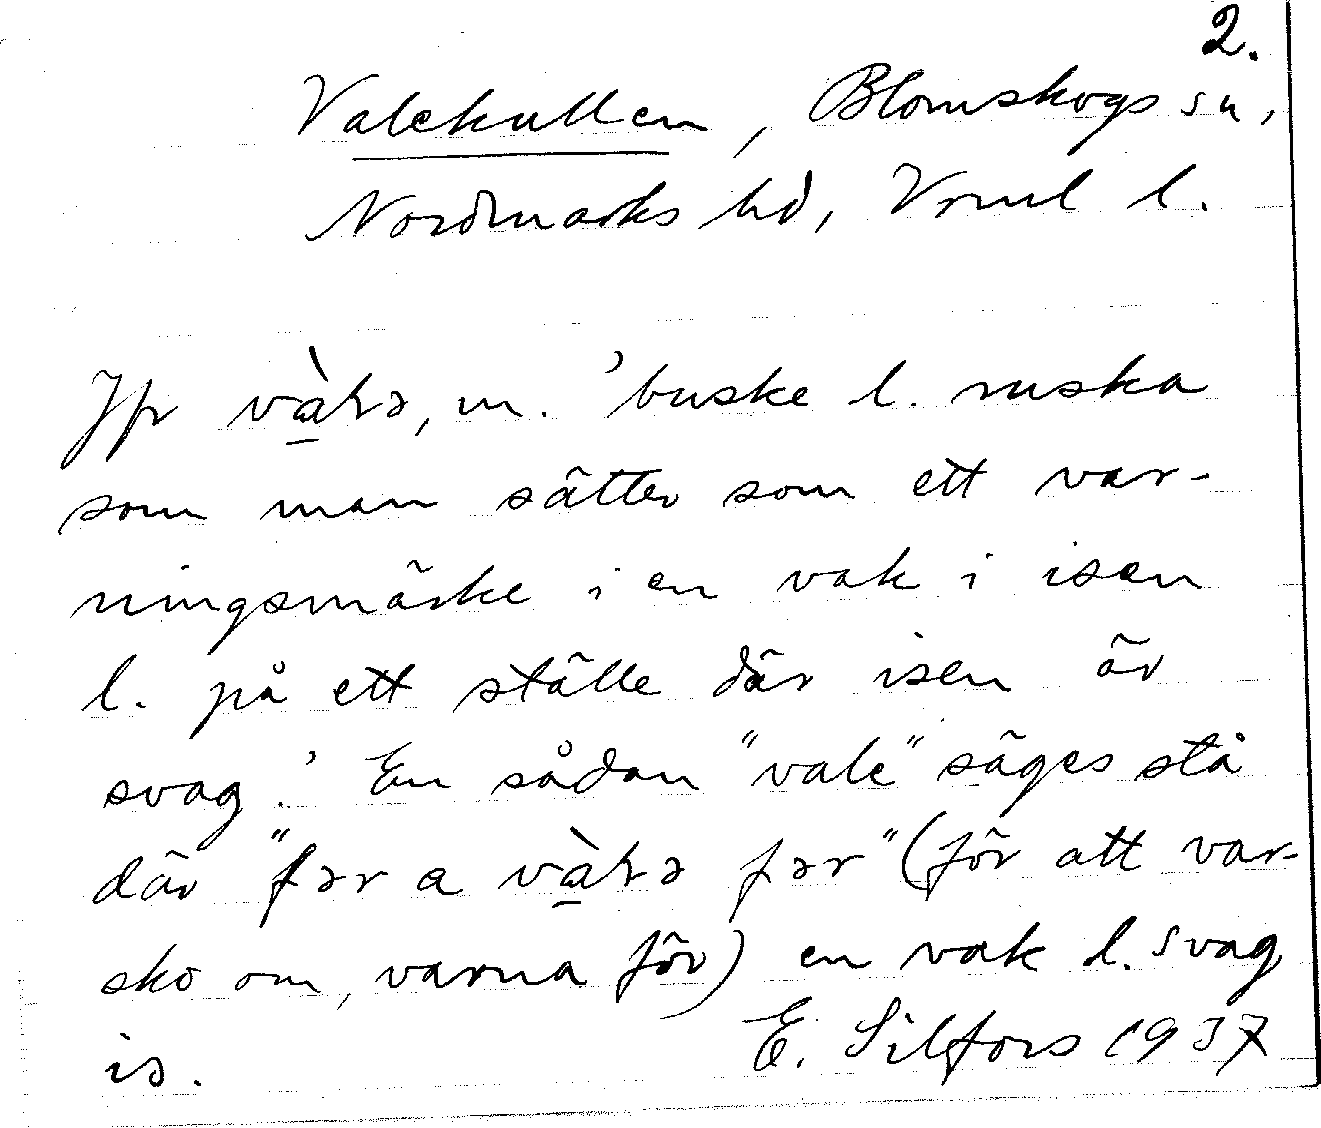 2.
Valekullen, Blomskogs sn,
Nordmarks hd, Vrml l.
Jfr và̱ɫɘ, m. ’buske l. ruska
som man sätter som ett var-
ningsmärke i en vak i isen
l. på ett ställe där isen är
svag.’ En sådan "vale" säges stå
där "fər a và̱ɫə fər" (för att var-
sko om, varna för) en vak l. svag
is.
E. Silfors 1937